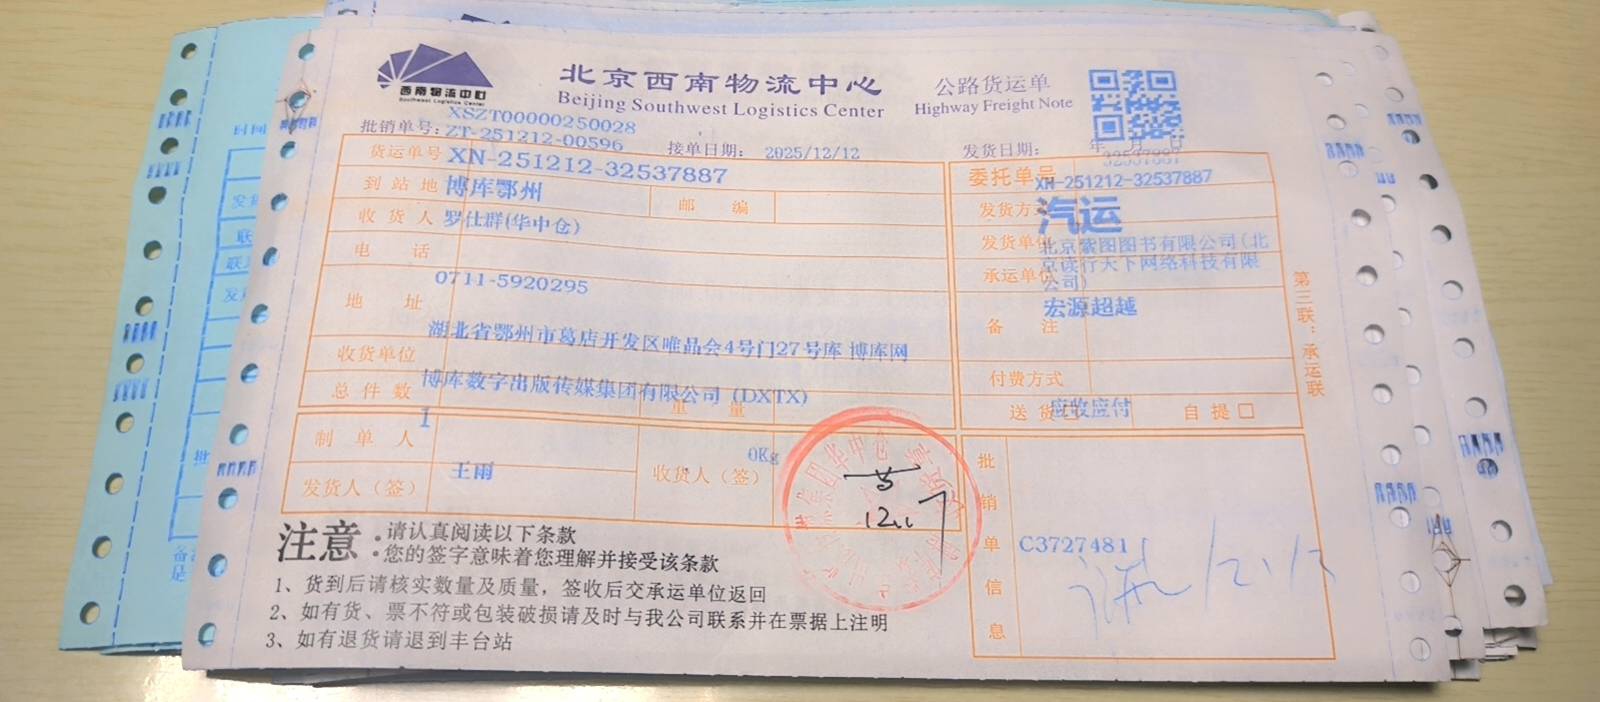 西南物流中心
Southwest Logistics Center
北京西南物流中心
Beijing Southwest Logistics Center
公路货运单
Highway Freight Note
XSZT00000250028
批销单号: ZT-251212-00596
接单日期: 2025/12/12
发货日期: 年 月 日
32537887
货运单号 XN-251212-32537887
委托单号 XN-251212-32537887
到站地 博库鄂州
邮编
发货方式 汽运
收货人 罗仕群(华中仓)
发货单位 北京紫图图书有限公司(北京读行天下网络科技有限公司)
电话 0711-5920295
承运单位 宏源超越
地址 湖北省鄂州市葛店开发区唯品会4号门27号库 博库网
备注
收货单位 博库数字出版传媒集团有限公司 (DXTX)
付费方式 应收应付
总件数 1
重量 0Kg
送货□ 自提□
制单人 王雨
发货人（签）
收货人（签）
批销单信息 C3727481
第三联：承运联
注意：
•请认真阅读以下条款
•您的签字意味着您理解并接受该条款
1、货到后请核实数量及质量，签收后交承运单位返回
2、如有货、票不符或包装破损请及时与我公司联系并在票据上注明
3、如有退货请退到丰台站